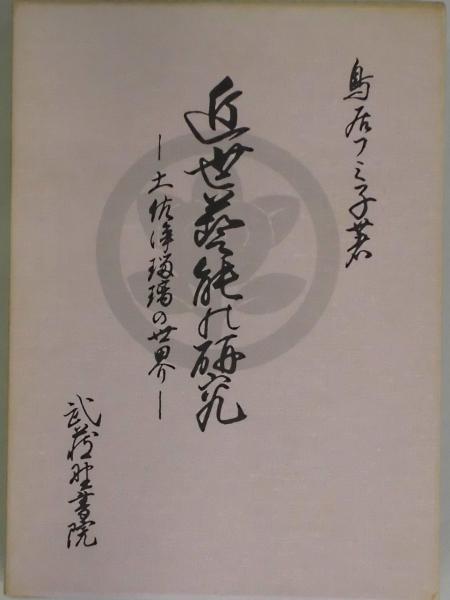 鳥居フミ子著
近世藝能の研究
―土佐浄瑠璃の世界―
武蔵野書院